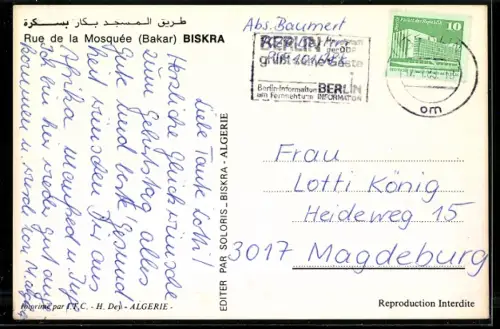 طريق المسجد بكار بسكرة
Rue de la Mosquée (Bakar) BISKRA
Liebe Tante Lotti!
Herzliche Glückwünsche
zum Geburtstag alles
Gute und beste Gesund
heit wünschen Dir aus
Afrika Manfred u.
Ich bin hier wieder gut an
kommen u.
EDITER PAR SOLORIS - BISKRA - ALGERIE
Imprimé par I.T.C. - H. Dey - ALGERIE -
Abs. Baumert
BERLIN
der DDR
grüßt seine Gäste
Berlin-Information
am Fernsehturm
BERLIN
INFORMATION
10
om
Frau
Lotti König
Heideweg 15
3017 Magdeburg
Reproduction Interdite